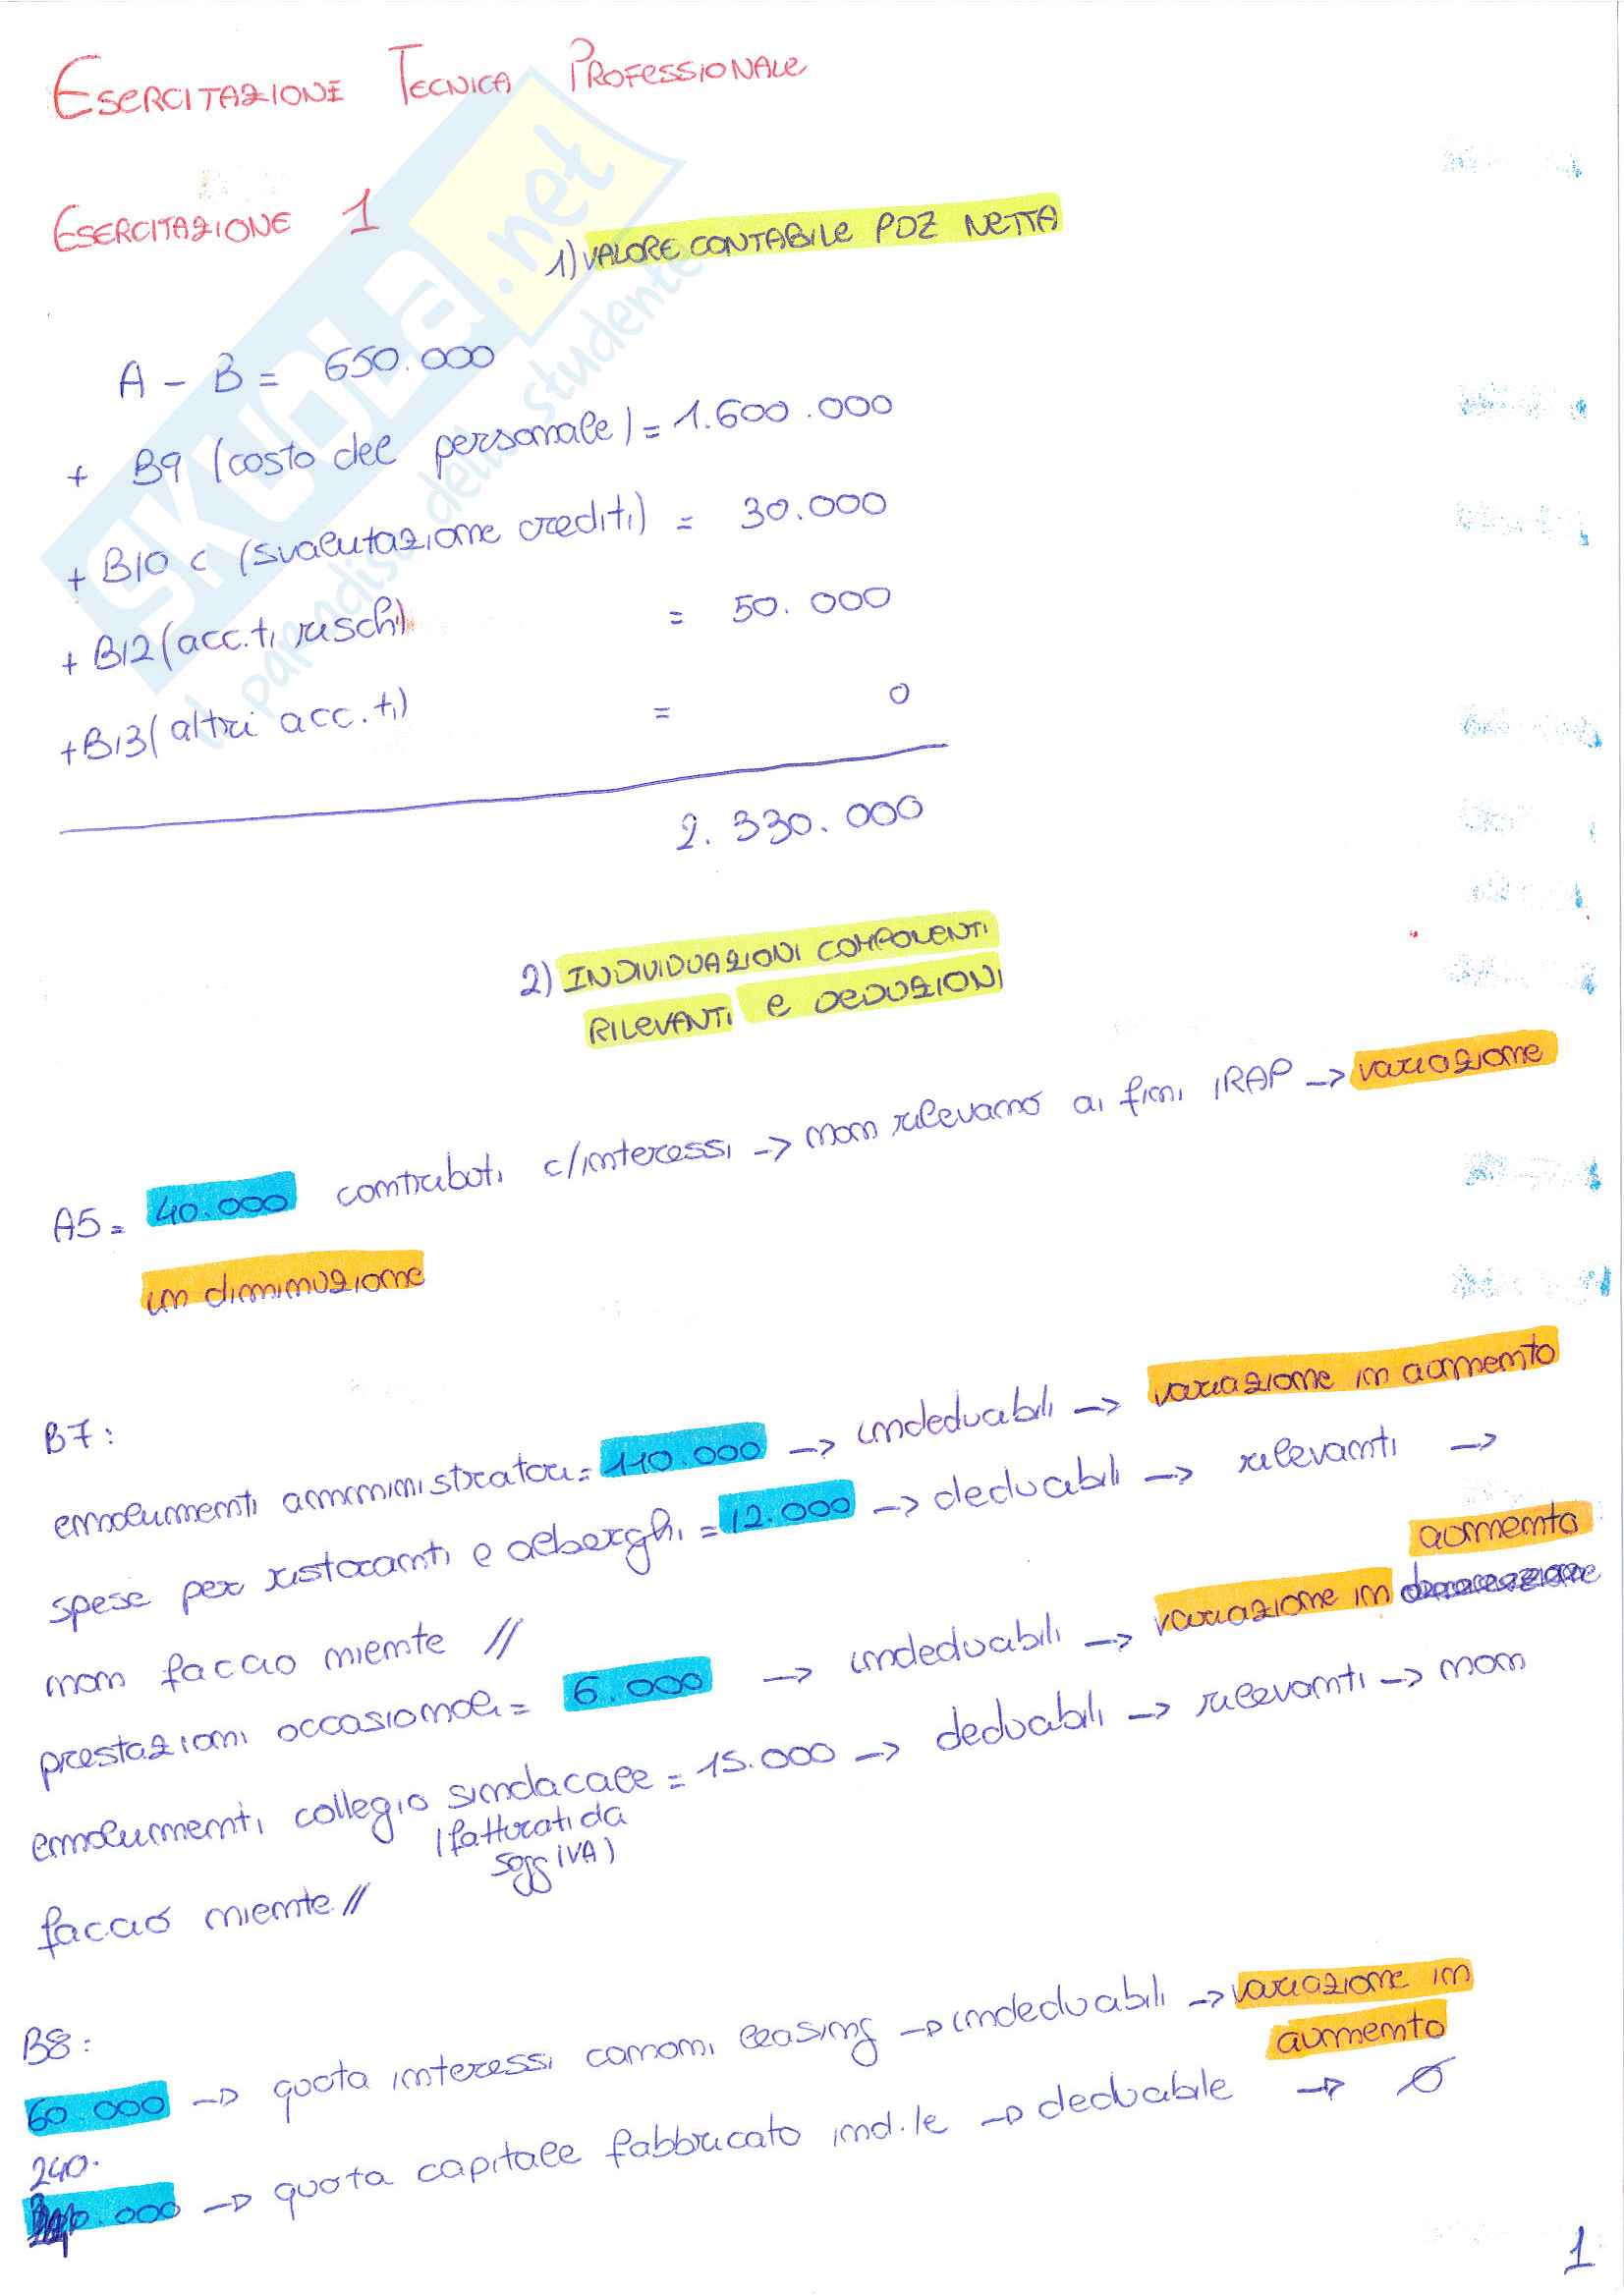 ESERCITAZIONE TECNICA PROFESSIONALE
ESERCITAZIONE 1
1) VALORE CONTABILE PDZ NETTA
A - B = 650.000
+ B9 (costo del personale) = 1.600.000
+ B10 c (svalutazione crediti) = 30.000
+ B12 (acc.ti rischi) = 50.000
+ B13 (altri acc.ti) = 0
2.330.000
2) INDIVIDUAZIONI COMPONENTI
RILEVANTI e DEDUZIONI
A5 = 40.000 contributi c/interessi -> non rilevano ai fini IRAP -> variazione
in diminuzione
B7:
emolumenti amministratori = 110.000 -> indeducibili -> variazione in aumento
spese per ristoranti e alberghi = 12.000 -> deducibili -> rilevanti ->
non faccio niente //
prestazioni occasionali = 6.000 -> indeducibili -> variazione in aumento
emolumenti collegio sindacale = 15.000 -> deducibili -> rilevanti -> non
(fatturati da
sogg IVA)
faccio niente //
B8:
60.000 -> quota interessi canoni leasing -> indeducibili -> variazione in
aumento
240.
000 -> quota capitale fabbricato ind.le -> deducibile -> Ø
1
SKUOLA.net
il paradiso dello studente